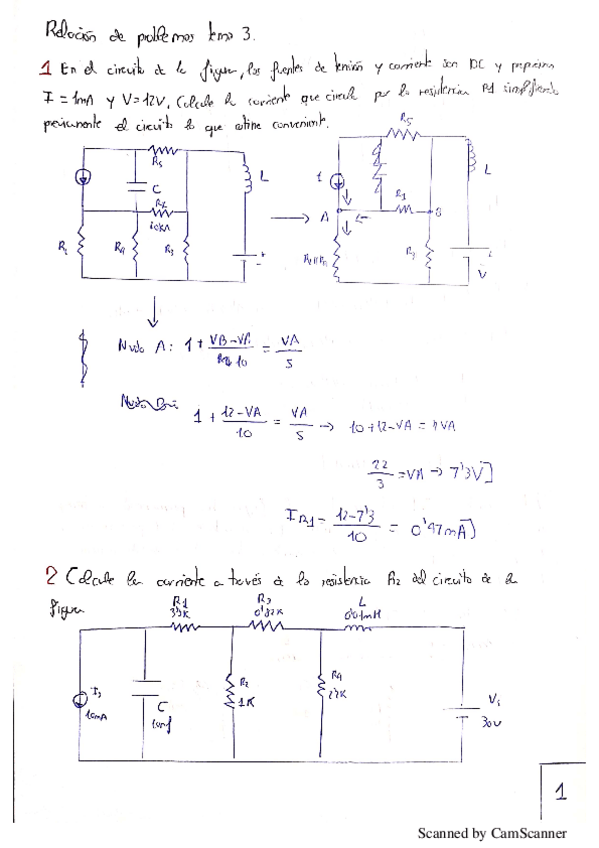 Relación de problemas tema 3.
1 En el circuito de la figura, las fuentes de tensión y corriente son DC y
I = 1mA y V = 12V. Calcule la corriente que circula por la resistencia R1 simplificando
previamente el circuito lo que estime conveniente.
R5
C
R1
10KΩ
L
R2
R4
R3
+
-
R5
I
L
R1
A
B
R2||R4
R3
V
Nudo A: 1 + VB-VA / 10 = VA / 5
1 + 12-VA / 10 = VA / 5 → 10+12-VA =
22 / 3 = VA → 7'3V]
IR1 = 12-7'3 / 10 = 0'47mA]
2 Calcule la corriente a través de la resistencia R2 del circuito de la
figura
R1
3'3K
R3
0'82K
L
0'01mH
I3
10mA
C
10nf
R2
1K
R4
2'2K
Vs
30V
1
Scanned by CamScanner